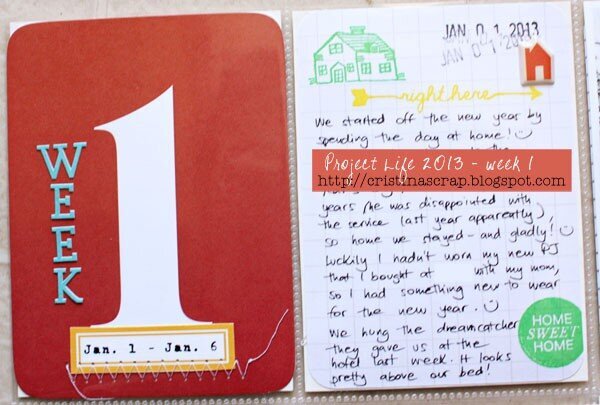 WEEK
1
Jan. 1 - Jan. 6
JAN 01 2013
JAN 01 2013
right here
We started off the new year by
spending the day at home!
the
Project Life 2013 - week 1
http://cristinascrap.blogspot.com
years he was disappointed with
the service (last year apparently),
so home we stayed - and gladly!
Luckily I hadn't worn my new PJ
that I bought at with my mom,
so I had something new to wear
for the new year.
We hung the dreamcatcher
they gave us at the
hotel last week. It looks
pretty above our bed!
HOME
SWEET
HOME